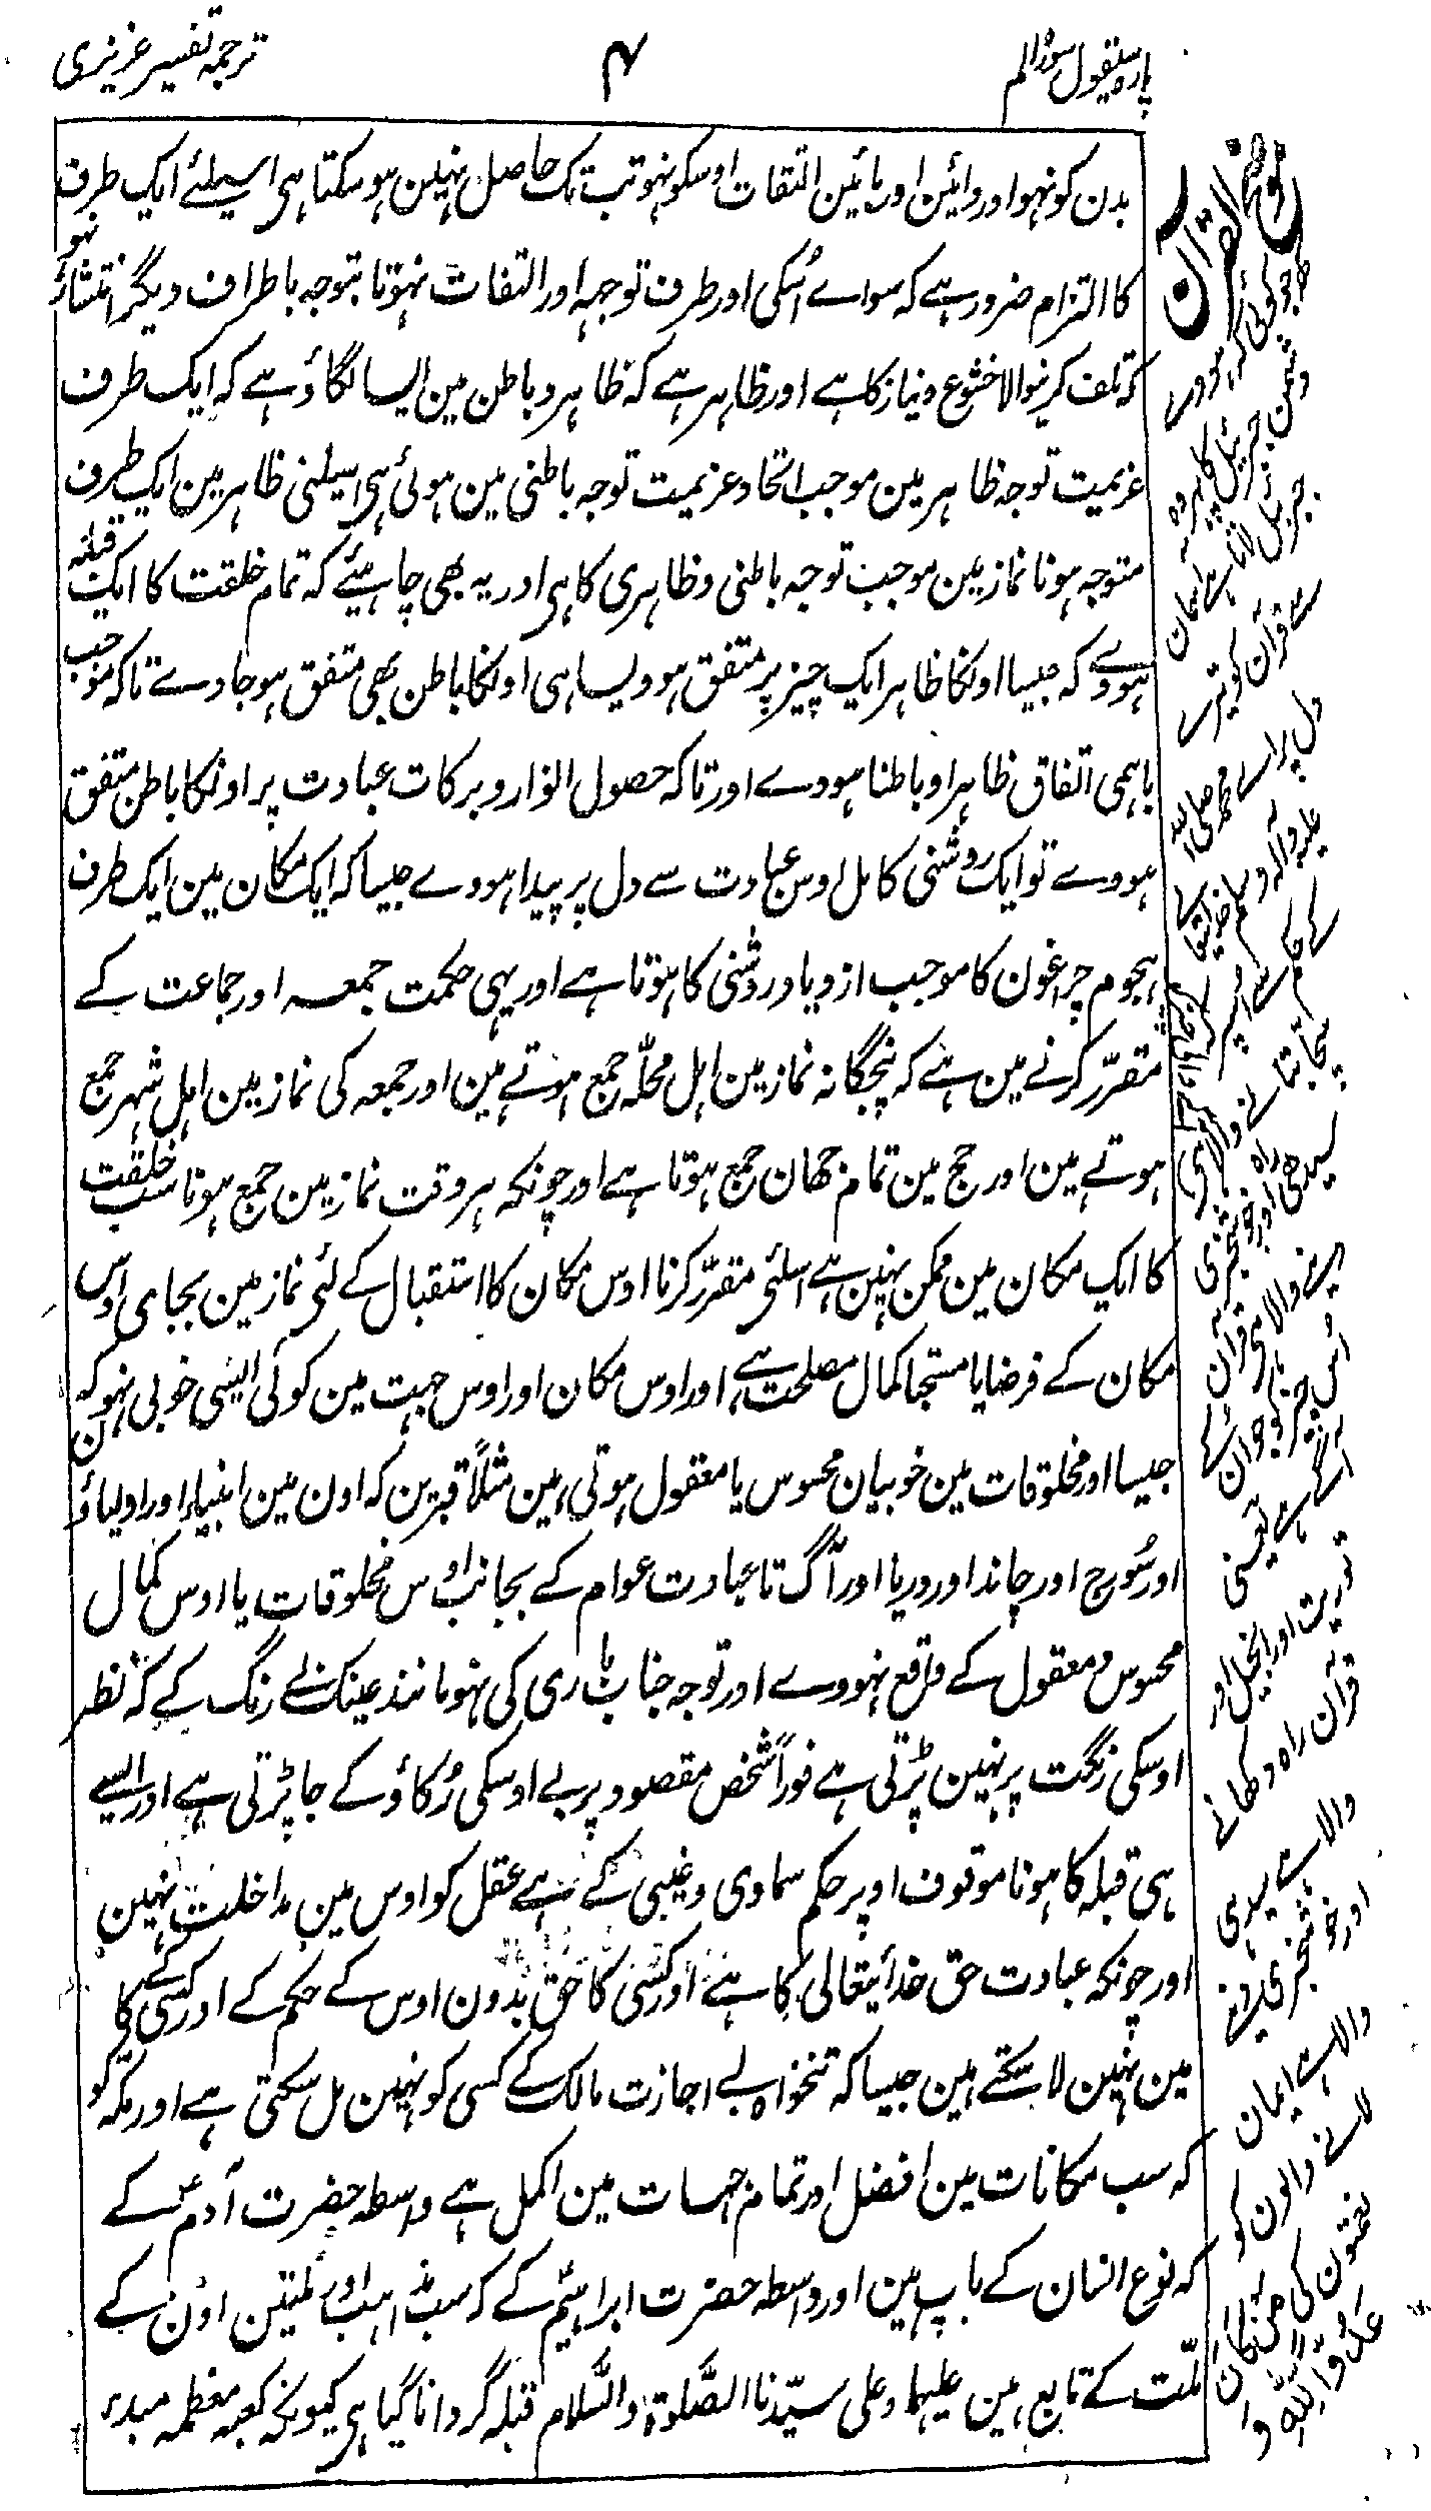 پارہ سیقول سورۂ الم
۴
ترجمہ تفسیر عزیزی
بدن کو نہو اور دائین اور بائین التفات اوسکو نہو تب تک حاصل نہین ہو سکتا ہی اسیلئے ایک طرف
کا التزام ضرور ہے کہ سواے اُسکی اور طرف توجہ اور التفات نہو تا بتوجہ باطراف دیگر انتشار نہو
کہ تلف کرنیوالا خشوع و نیاز کا ہے اور ظاہر ہے کہ ظاہر و باطن مین ایسا لگاؤ ہے کہ ایک طرف
عزیمت توجہ ظاہر مین موجب اتحاد عزیمت توجہ باطنی مین ہوئی ہی اسیلئی ظاہر مین ایک طرف
متوجہ ہونا نماز مین موجب توجہ باطنی و ظاہری کا ہی اور یہ بھی چاہیئے کہ تمام خلقت کا ایک قبلہ
ہووے کہ جیسا اونکا ظاہر ایک چیز پر متفق ہو ویسا ہی اونکا باطن بھی متفق ہو جاوے تاکہ موجب
باہمی اتفاق ظاہرا و باطنا ہووے اور تاکہ حصول انوار و برکات عبادت پر اونکا باطن متفق
ہووے تو ایک روشنی کامل اوس عبادت سے دل پر پیدا ہووے جیسا کہ ایک مکان مین ایک طرف
ہجوم چرغون کا موجب ازدیاد روشنی کا ہوتا ہے اور یہی حکمت جمعہ اور جماعت کے
مقرّر کرنے مین ہے کہ پنجگانہ نماز مین اہل محلّہ جمع ہوتے ہین اور جمعہ کی نماز مین اہل شہر جمع
ہوتے ہین اور حج مین تمام جہان جمع ہوتا ہے اور چونکہ ہر وقت نماز مین جمع ہونا سب خلقت
کا ایک مکان مین ممکن نہین ہے اسلئی مقرّر کرنا اوس مکان کا استقبال کے لئی نماز مین بجای اوس
مکان کے فرضا یا مستحبا کمال مصلحت ہے اور اوس مکان اور اوس جہت مین کوئی ایسی خوبی نہو کہ
جیسا اور مخلوقات مین خوبیان محسوس یا معقول ہوتی ہین مثلاً قبرین کہ اون مین انبیاء اور اولیاؤن
اور سُورج اور چاند اور دریا اور آگ تا عبادت عوام کے بجانب اوس مخلوقات یا اوس کمال
محسوس و معقول کے واقع نہووے اور توجہ جناب باری کی نہو مانند عینک نے رنگ کے کہ نظر
اوسکی رنگت پر نہین پڑتی ہے فوراً شخص مقصود پر بے اوسکی رُکاؤ کے جا پڑتی ہے اور ایسے
ہی قبلہ کا ہونا موقوف اوپر حکم سماوی و غیبی کے ہے عقل کو اوس مین مداخلت نہین
اور چونکہ عبادت حق خداۓتعالی کا ہے اور کسی کا حق بدون اوس کے حکم کے اور کسی کے کام
مین نہین لا سکتے ہین جیسا کہ تنخواہ بے اجازت مالک کے کسی کو نہین مل سکتی ہے اور مکّہ کو
کہ سب مکانات مین افضل اور تمام جہات مین اکمل ہے واسطہ حضرت آدمؑ کے
کہ نوع انسان کے باپ ہین اور واسطہ حضرت ابراہیمؑ کے کہ سب مذاہب اور ملتین اون کے
ملّت کے تابع ہین علیہما و علی سیّدنا الصَّلوۃ والسَّلام قبلہ گردانا گیا ہی کیونکہ کعبہ معظمہ مبدء
دشمن جبریل کا
سے قرآن کو تیرے
دل پر اے محمد صلی اللہ
علیہ و آلہ و سلم
سیدھی راہ اور خوشخبری
دینے والا ہی قرآن
اُس چیز کو جو اُن کے
آگے ہے یعنی
توریت اور انجیل اور
قرآن راہ دکھانے
والا ہے سیدھی
اور خوشخبری دینے
والا ہے ایمان
لانے والون کو
نعمتون کی
عدوّا للہ